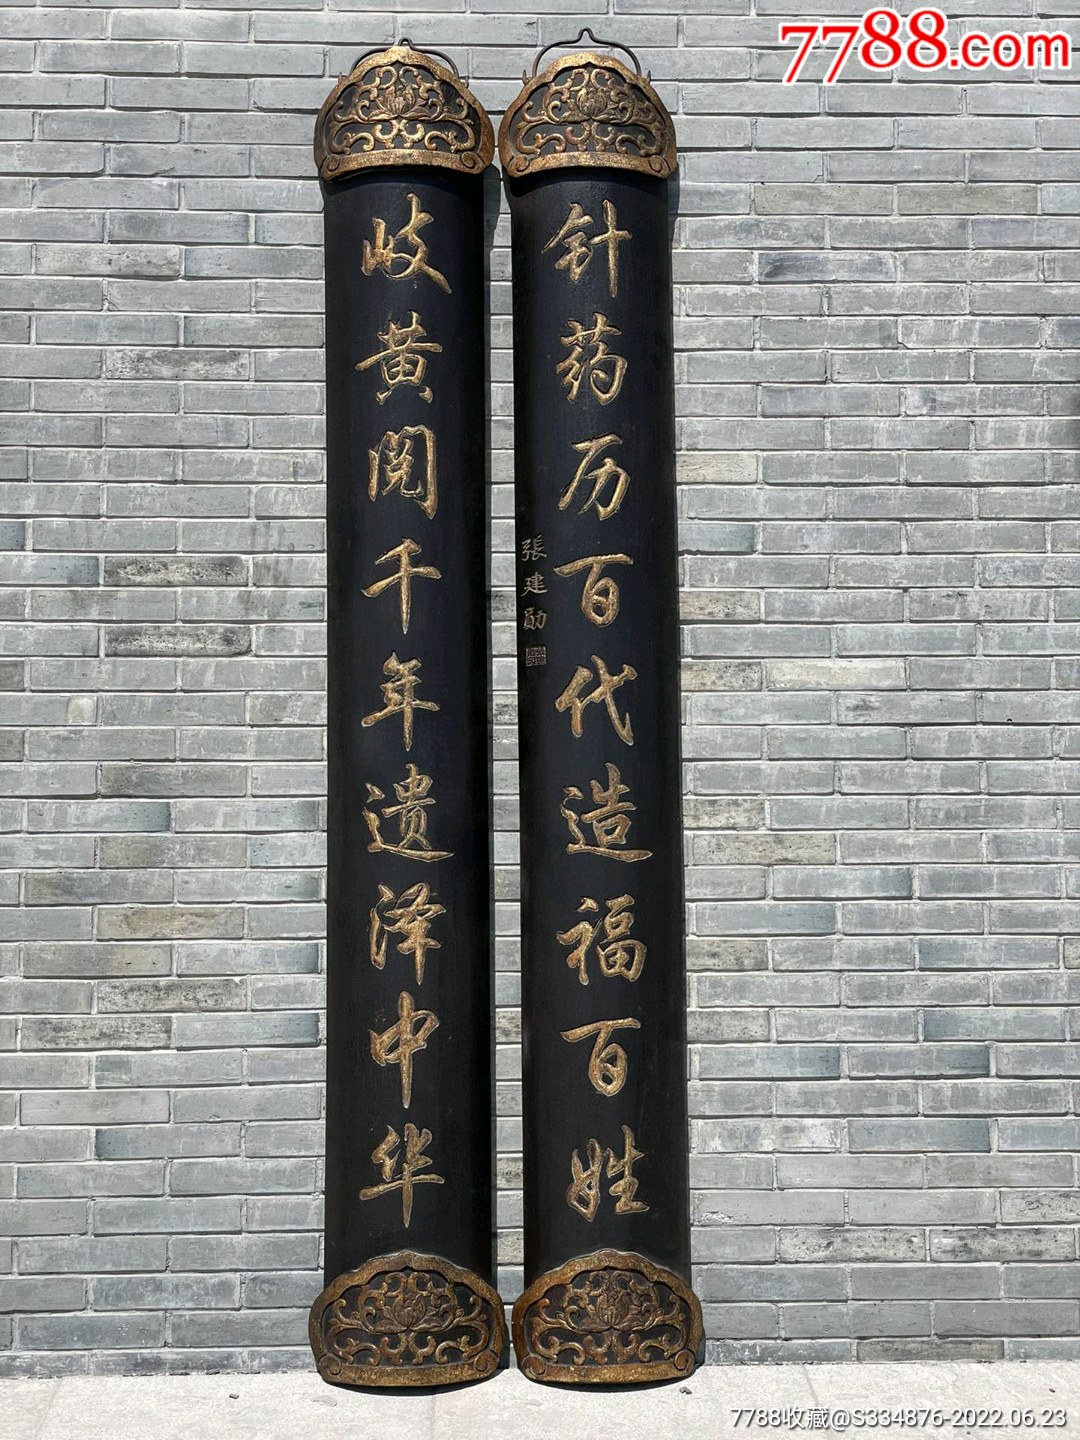 7788.com
岐黄阅千年遗泽中华
针药历百代造福百姓
張建勛
7788收藏@S334876-2022.06.23